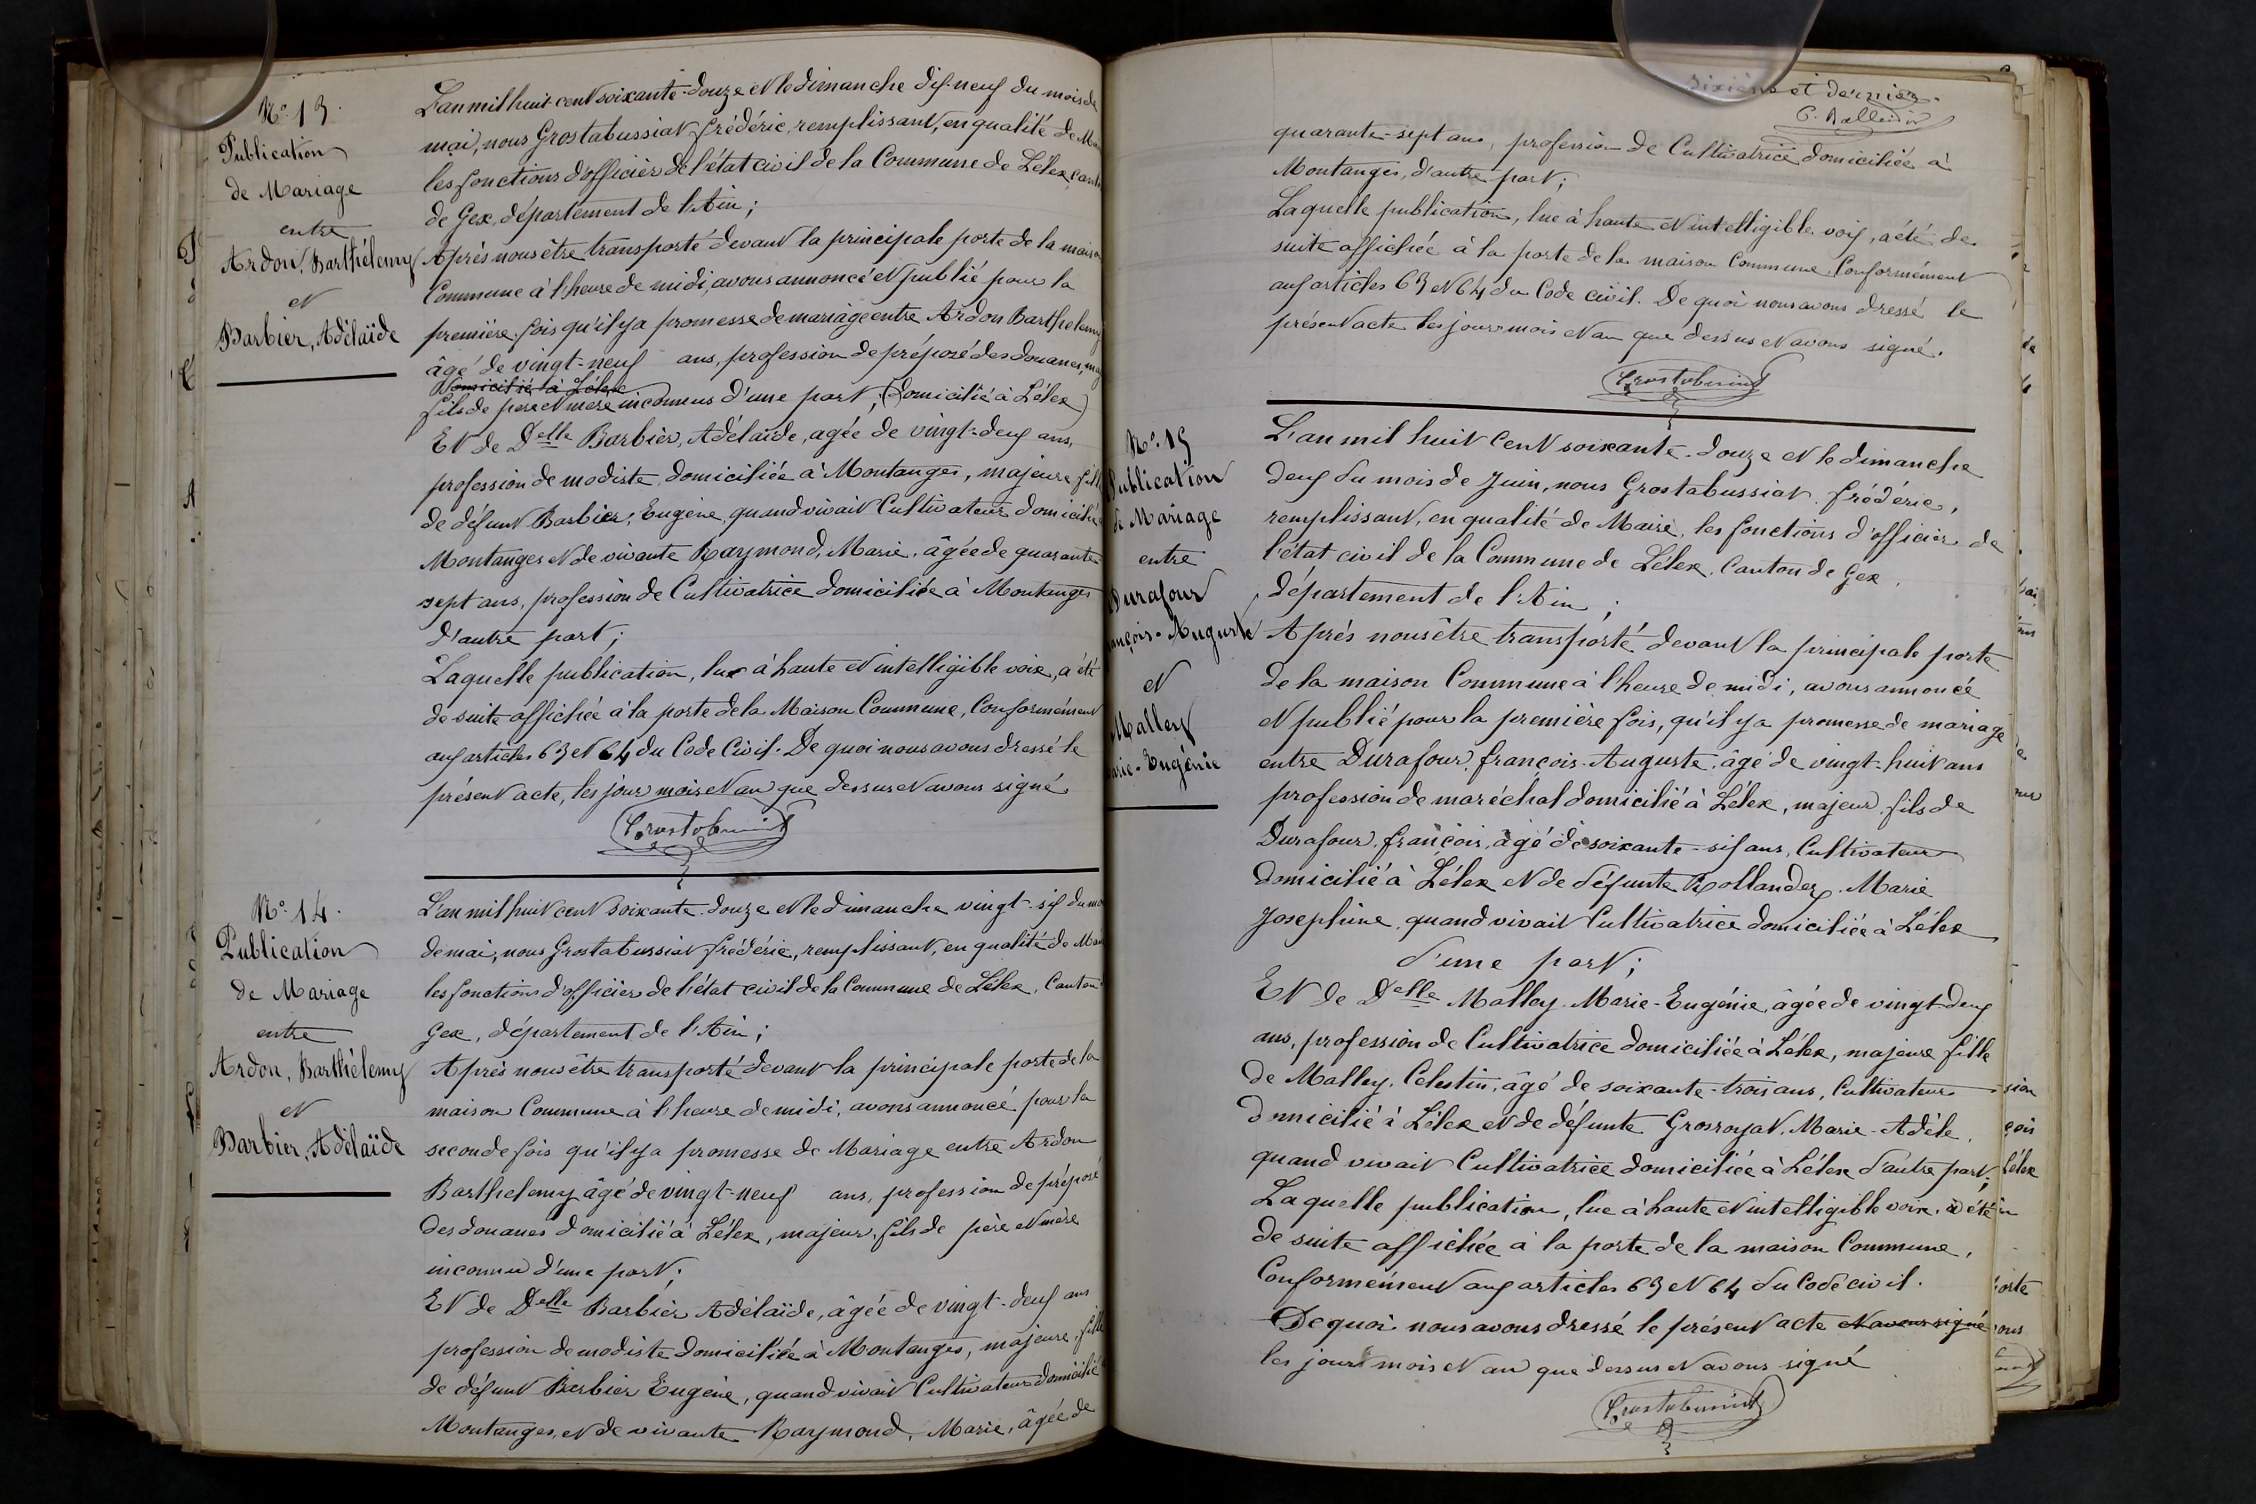 N.º 13.
Publication
de Mariage
entre
Ardon, Barthélemy
et
Barbier, Adélaïde
L'an mil huit cent soixante-douze et le dimanche dix-neuf du mois de
mai, nous Grostabussiat frédéric, remplissant, en qualité de
les fonctions d'officier de l'état civil de la Commune de Lélex,
de Gex, département de l'Ain;
Après nous être transporté devant la principale porte de la maison
Commune à l'heure de midi, avons annoncé et publié pour la
première fois qu'il y a promesse de mariage entre Ardon Barthelemy
âgé de vingt-neuf ans, profession de préposé des douanes,
Domicilié à Lélex
fils de père et mère inconnus d'une part; (Domicilié à Lélex)
Et de Delle Barbier, Adélaïde, agée de vingt-deux ans,
profession de modiste, domiciliée à Montanges, majeure fille
de défunt Barbier, Eugène, quand vivait Cultivateur domicilié
Montanges et de vivante Raymond, Marie, âgée de quarante
sept ans, profession de Cultivatrice domiciliée à Montanges
d'autre part;
Laquelle publication, lue à haute et intelligible voix, a été
de suite affichée à la porte de la Maison Commune, Conformément
aux articles 63 et 64 du Code Civil. De quoi nous avons dressé le
présent acte, les jour mois et an que dessus et avons signé
N.º 14.
Publication
de Mariage
entre
Ardon, Barthélemy
et
Barbier, Adélaïde
L'an mil huit cent soixante-douze et le dimanche vingt-six du
de mai, nous Grostabussiat frédéric, remplissant, en qualité de
les fonctions d'officier de l'état civil de la Commune de Lélex, Canton
Gex, département de l'Ain;
Après nous être transporté devant la principale porte de la
maison Commune à l'heure de midi, avons annoncé pour la
seconde fois qu'il y a promesse de Mariage entre Ardon
Barthelemy âgé de vingt-neuf ans, profession de préposé
des douanes domicilié à Lélex, majeur, fils de père et mère
inconnu d'une part;
Et de Delle Barbier Adélaïde, âgée de vingt-deux ans
profession de modiste domiciliée à Montanges, majeure, fille
de défunt Barbier Eugène, quand vivait Cultivateur domicilié
Montanges, et de vivante Raymond, Marie, âgée de
Sixième et dernier.
quarante-sept ans, profession de Cultivatrice domiciliée à
Montanges, d'autre part;
Laquelle publication, lue à haute et intelligible voix, a été de
suite affichée à la porte de la maison Commune. Conformément
aux articles 63 et 64 du Code civil. De quoi nous avons dressé le
présent acte les jour mois et an que dessus et avons signé.
N.º 15
Publication
de Mariage
entre
Durafour
François-Auguste
et
Malley
Marie-Eugénie
L'an mil huit cent soixante-douze et le dimanche
deux du mois de Juin, nous Grostabussiat frédéric,
remplissant, en qualité de Maire, les fonctions d'officier de
l'état civil de la Commune de Lélex, Canton de Gex,
département de l'Ain;
Après nous être transporté devant la principale porte
de la maison Commune à l'heure de midi, avons annoncé
et publié pour la première fois, qu'il y a promesse de mariage
entre Durafour, françois-Auguste, âgé de vingt-huit ans
profession de maréchal domicilié à Lélex, majeur, fils de
Durafour, françois, âgé de soixante-six ans, Cultivateur
domicilié à Lélex et de défunte Rollandez, Marie
Josephine, quand vivait Cultivatrice domiciliée à Lélex
d'une part;
Et de Delle Malley Marie-Eugénie, âgée de vingt-deux
ans, profession de Cultivatrice domiciliée à Lélex, majeure fille
de Malley, Celestin, âgé de soixante-trois ans, Cultivateur
domicilié à Lélex et de défunte Grosroyat, Marie-Adèle,
quand vivait Cultivatrice domiciliée à Lélex d'autre part.
Laquelle publication, lue à haute et intelligible voix, a été
de suite affichée à la porte de la maison Commune,
Conformément aux articles 63 et 64 du Code civil.
De quoi nous avons dressé le présent acte et avons signé
les jours mois et an que dessus et avons signé